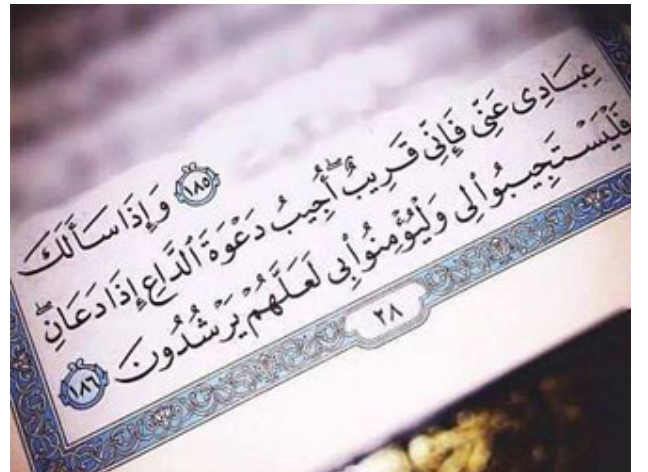 ١٨٥ وَإِذَا سَأَلَكَ
عِبَادِى عَنِّى فَإِنِّى قَرِيبٌ ۖ أُجِيبُ دَعْوَةَ ٱلدَّاعِ إِذَا دَعَانِ ۖ
فَلْيَسْتَجِيبُوا۟ لِى وَلْيُؤْمِنُوا۟ بِى لَعَلَّهُمْ يَرْشُدُونَ ١٨٦
٢٨